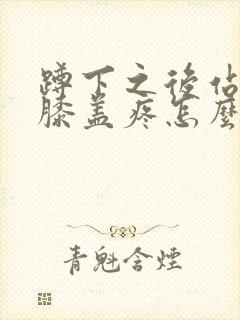 蹲下之後佔
膝盖疼怎麼
青魁含煙